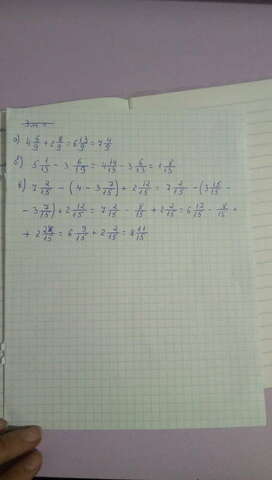 а) 4 5/9 + 2 8/9 = 6 13/9 = 7 4/9
б) 5 1/13 - 3 6/13 = 4 14/13 - 3 6/13 = 1 8/13
в) 7 2/15 - (4 - 3 7/15) + 2 12/15 = 7 2/15 - (3 15/15 -
- 3 7/15) + 2 12/15 = 7 2/15 - 8/15 + 2 2/15 = 6 17/15 - 8/15 +
+ 2 /15 = 6 9/15 + 2 2/15 = 8 11/15